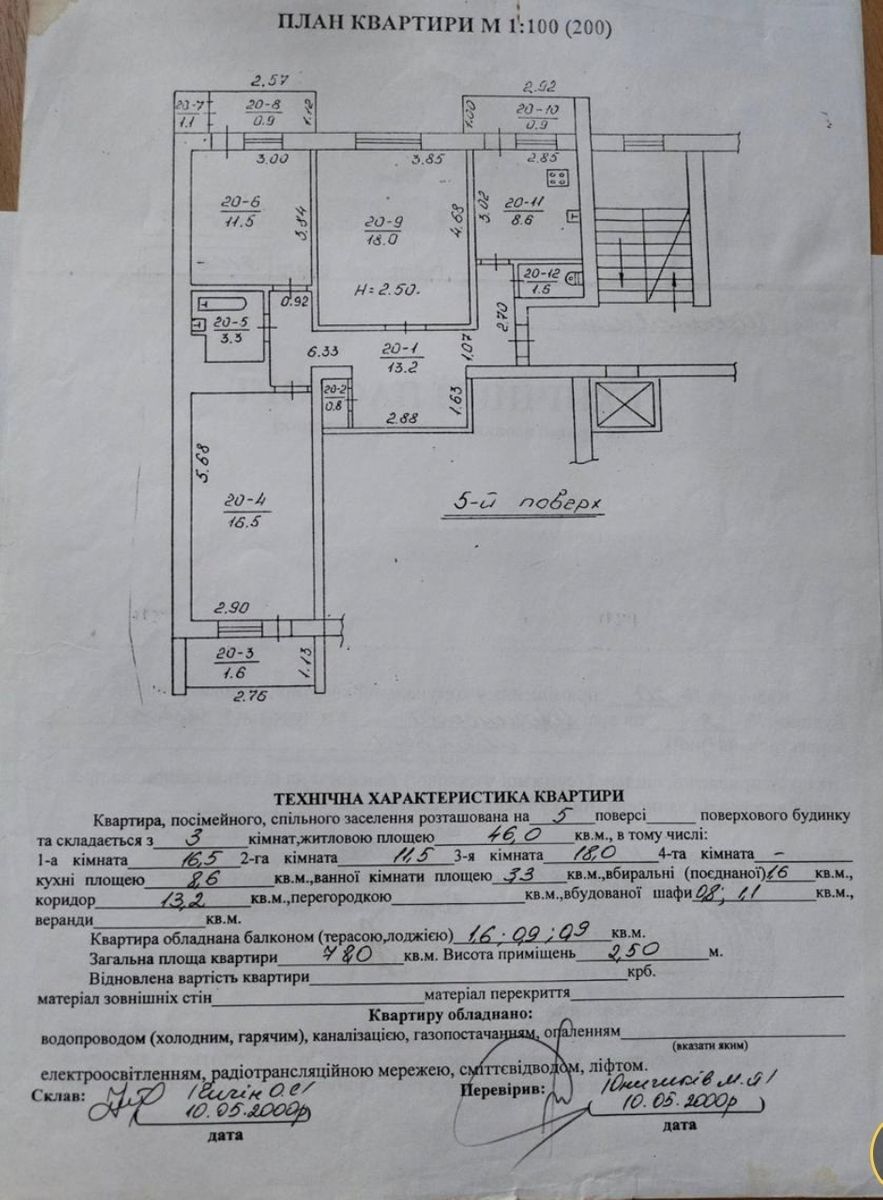 ПЛАН КВАРТИРИ М 1:100 (200)
2.57
2.92
20-7
1.1
20-8
0.9
1.12
1.00
20-10
0.9
3.00
3.85
2.85
20-6
11.5
3.84
20-9
18.0
4.68
3.02
20-11
8.6
H=2.50.
20-12
1.5
0.92
2.70
20-5
3.3
6.33
20-1
13.2
1.07
20-2
0.8
2.88
1.63
5.68
20-4
16.5
5-й поверх
2.90
20-3
1.6
1.13
2.76
ТЕХНІЧНА ХАРАКТЕРИСТИКА КВАРТИРИ
Квартира, посімейного, спільного заселення розташована на 5 поверсі поверхового будинку
та складається з 3 кімнат,житловою площею 46,0 кв.м., в тому числі:
1-а кімната 16,5 2-га кімната 11,5 3-я кімната 18,0 4-та кімната –
кухні площею 8,6 кв.м.,ванної кімнати площею 3,3 кв.м.,вбиральні (поєднаної) 1,6 кв.м.,
коридор 13,2 кв.м.,перегородкою кв.м.,вбудованої шафи 0,8; 1,1 кв.м.,
веранди кв.м.
Квартира обладнана балконом (терасою,лоджією) 1,6; 0,9; 0,9 кв.м.
Загальна площа квартири 78,0 кв.м. Висота приміщень 2,50 м.
Відновлена вартість квартири крб.
матеріал зовнішніх стін матеріал перекриття
Квартиру обладнано:
водопроводом (холодним, гарячим), каналізацією, газопостачанням, опаленням
(вказати яким)
електроосвітленням, радіотрансляційною мережею, сміттєвідводом, ліфтом.
Склав:
10.05.2000р
дата
Перевірив:
10.05.2000р
дата